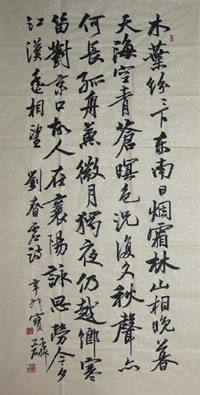 木葉紛々下东南日烟霜林山相晚暮
天海空青蒼暝色况復久秋聲亦
何長孤舟兼微月獨夜仍越鄉寒
笛對京口故人在襄陽詠思勞今夕
江漢遙相望 劉眘虛詩 辛卯寶麟